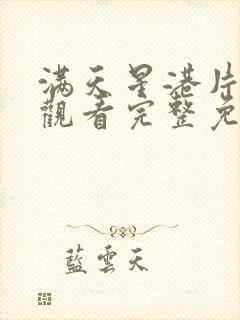 滿天星港片
觀看完整免
藍雲天